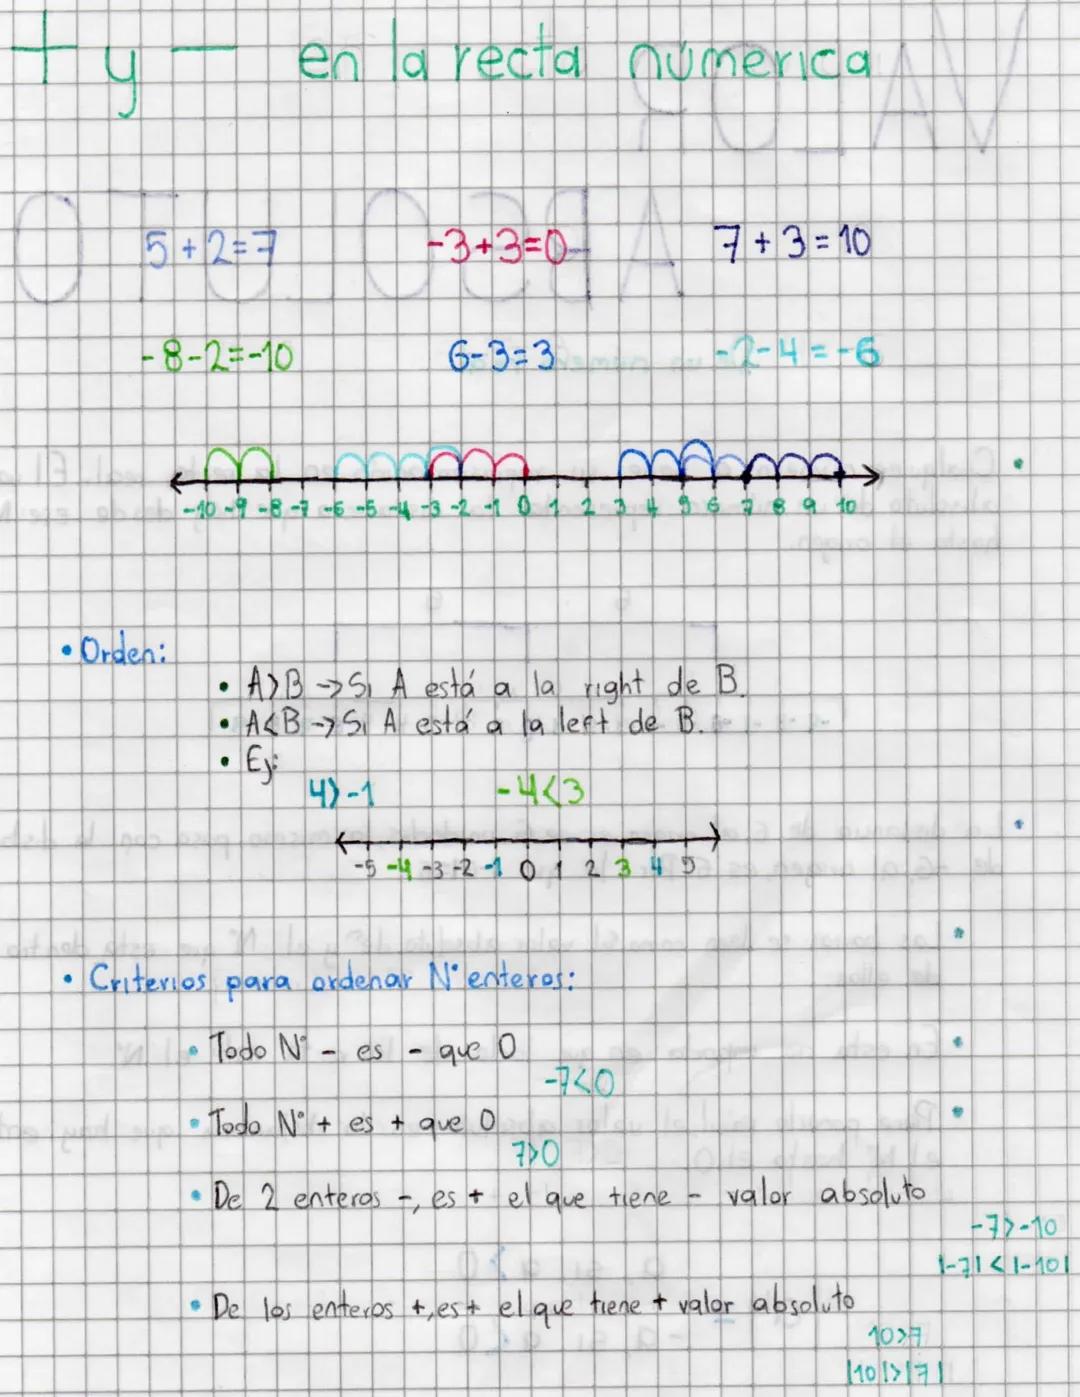 + y - en la recta númerica
5+2=7 -3+3=0 7+3=10
-8-2=-10 6-3=3 -2-4=-6
-10 -9 -8 -7 -6 -5 -4 -3 -2 -1 0 1 2 3 4 5 6 7 8 9 10
• Orden:
• A>B → Si A está a la right de B.
• A<B → Si A está a la left de B.
• Ej:
4>-1 -4<3
-5 -4 -3 -2 -1 0 1 2 3 4 5
• Criterios para ordenar N° enteros:
• Todo N° - es - que 0
-7<0
• Todo N° + es + que 0
7>0
• De 2 enteros -, es + el que tiene - valor absoluto
-7>-10
|-7|<|-10|
• De los enteros +, es + el que tiene + valor absoluto
10>7
|10|>|7|